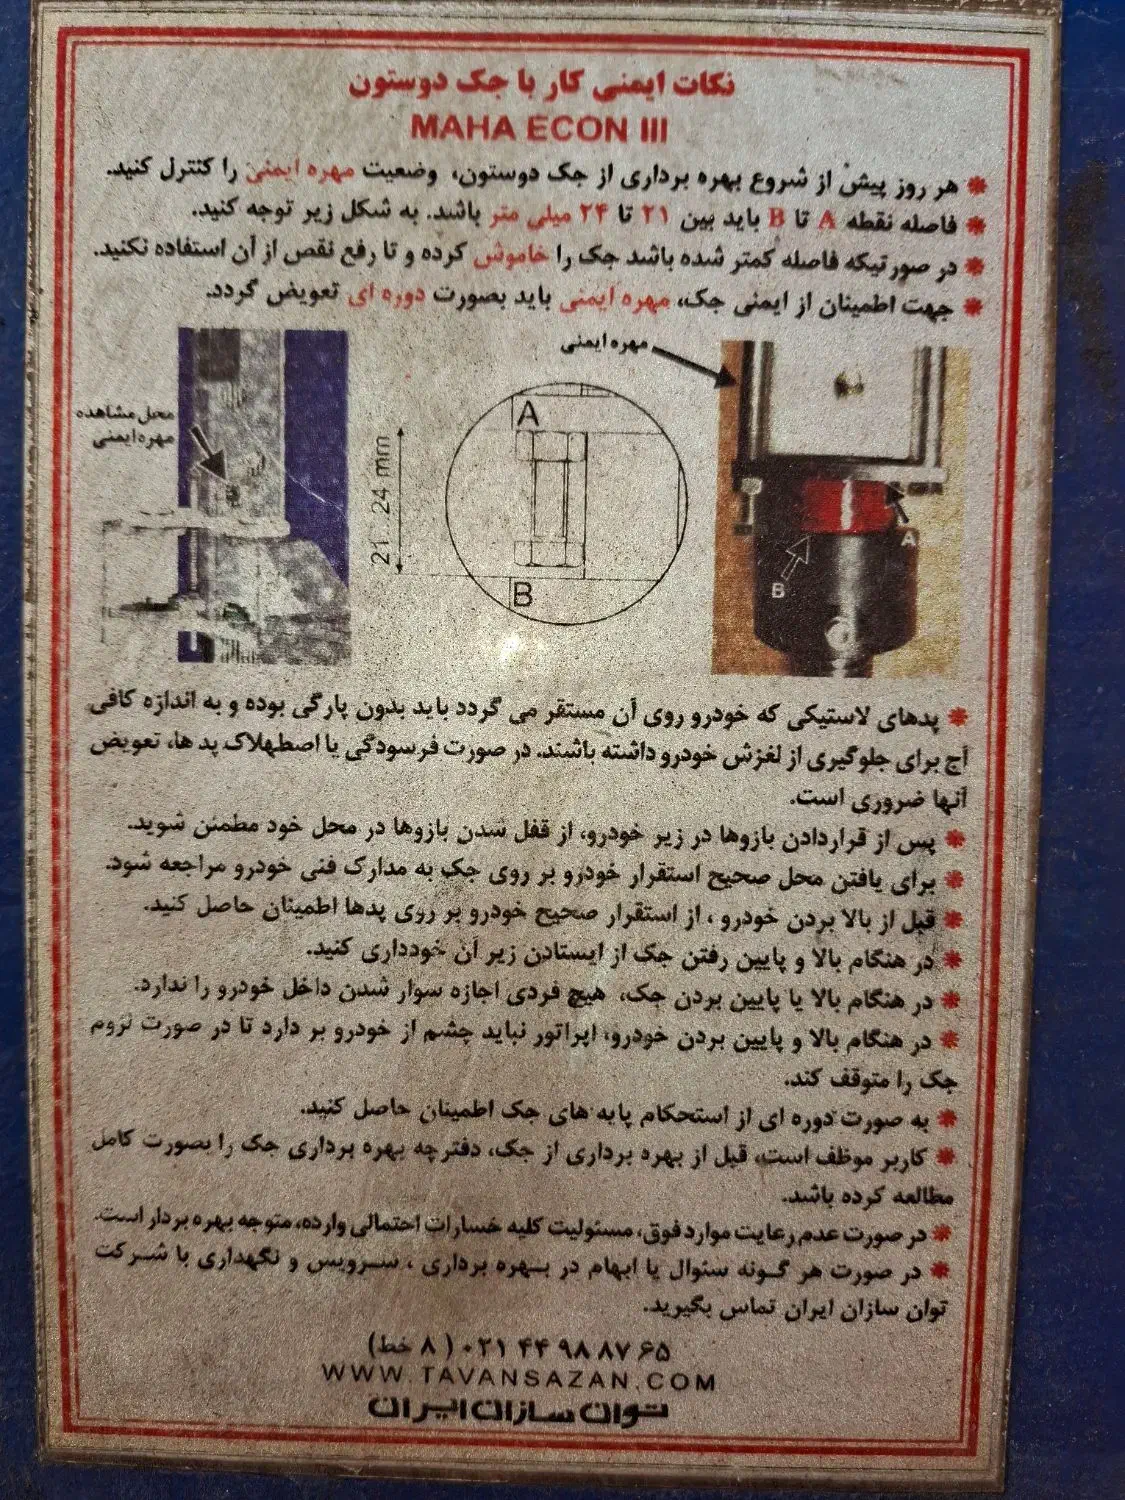 نکات ایمنی کار با جک دوستون
MAHA ECON III
هر روز پیش از شروع بهره برداری از جک دوستون، وضعیت مهره ایمنی را کنترل کنید.
فاصله نقطه A تا B باید بین ۲۱ تا ۲۴ میلی متر باشد. به شکل زیر توجه کنید.
در صورتیکه فاصله کمتر شده باشد جک را خاموش کرده و تا رفع نقص از آن استفاده نکنید.
جهت اطمینان از ایمنی جک، مهره ایمنی باید بصورت دوره ای تعویض گردد.
مهره ایمنی
A
B
A
B
21...24 mm
محل مشاهده
مهره ایمنی
پدهای لاستیکی که خودرو روی آن مستقر می گردد باید بدون پارگی بوده و به اندازه کافی
آج برای جلوگیری از لغزش خودرو داشته باشند. در صورت فرسودگی یا اصطهلاک پد ها، تعویض
آنها ضروری است.
پس از قراردادن بازوها در زیر خودرو، از قفل شدن بازوها در محل خود مطمئن شوید.
برای یافتن محل صحیح استقرار خودرو بر روی جک به مدارک فنی خودرو مراجعه شود.
قبل از بالا بردن خودرو ، از استقرار صحیح خودرو بر روی پدها اطمینان حاصل کنید.
در هنگام بالا و پایین رفتن جک از ایستادن زیر آن خودداری کنید.
در هنگام بالا یا پایین بردن جک، هیچ فردی اجازه سوار شدن داخل خودرو را ندارد.
در هنگام بالا و پایین بردن خودرو، اپراتور نباید چشم از خودرو بر دارد تا در صورت لزوم
جک را متوقف کند.
به صورت دوره ای از استحکام پایه های جک اطمینان حاصل کنید.
کاربر موظف است، قبل از بهره برداری از جک، دفترچه بهره برداری جک را بصورت کامل
مطالعه کرده باشد.
در صورت عدم رعایت موارد فوق، مسئولیت کلیه خسارات احتمالی وارده، متوجه بهره بردار است.
در صورت هر گونه سئوال یا ابهام در بهره برداری ، سرویس و نگهداری با شرکت
توان سازان ایران تماس بگیرید.
۰۲۱ ۴۴ ۹۸ ۸۷ ۶۵ (۸ خط)
WWW.TAVANSAZAN.COM
توان سازان ایران